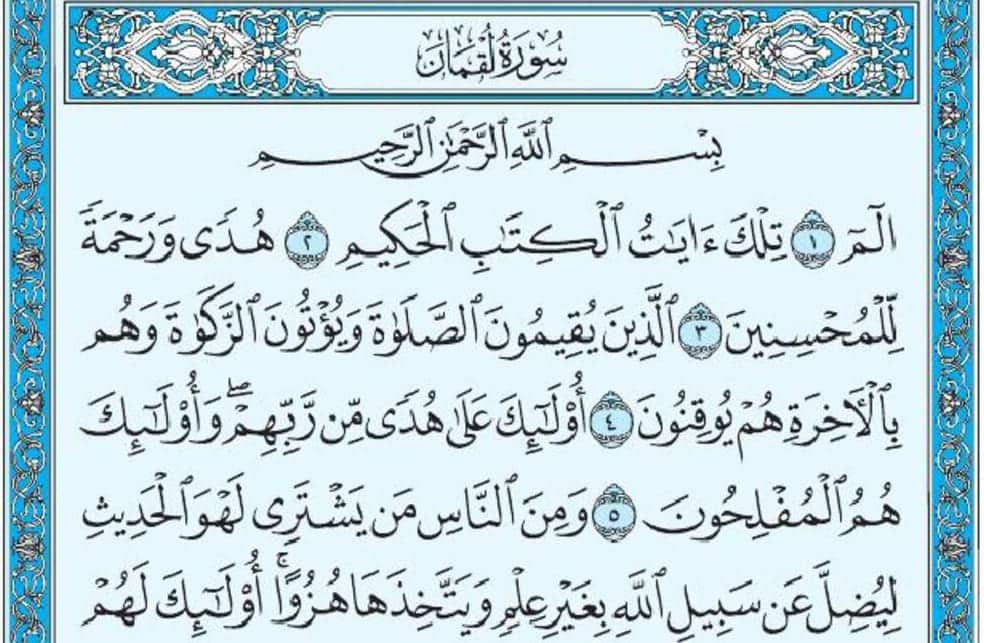 سُورَةُ لُقْمَانَ
بِسْمِ ٱللَّهِ ٱلرَّحْمَٰنِ ٱلرَّحِيمِ
الٓمٓ ١ تِلْكَ ءَايَٰتُ ٱلْكِتَٰبِ ٱلْحَكِيمِ ٢ هُدًى وَرَحْمَةً
لِّلْمُحْسِنِينَ ٣ ٱلَّذِينَ يُقِيمُونَ ٱلصَّلَوٰةَ وَيُؤْتُونَ ٱلزَّكَوٰةَ وَهُم
بِٱلْأٓخِرَةِ هُمْ يُوقِنُونَ ٤ أُو۟لَٰٓئِكَ عَلَىٰ هُدًى مِّن رَّبِّهِمْ ۖ وَأُو۟لَٰٓئِكَ
هُمُ ٱلْمُفْلِحُونَ ٥ وَمِنَ ٱلنَّاسِ مَن يَشْتَرِى لَهْوَ ٱلْحَدِيثِ
لِيُضِلَّ عَن سَبِيلِ ٱللَّهِ بِغَيْرِ عِلْمٍ وَيَتَّخِذَهَا هُزُوًا ۚ أُو۟لَٰٓئِكَ لَهُمْ